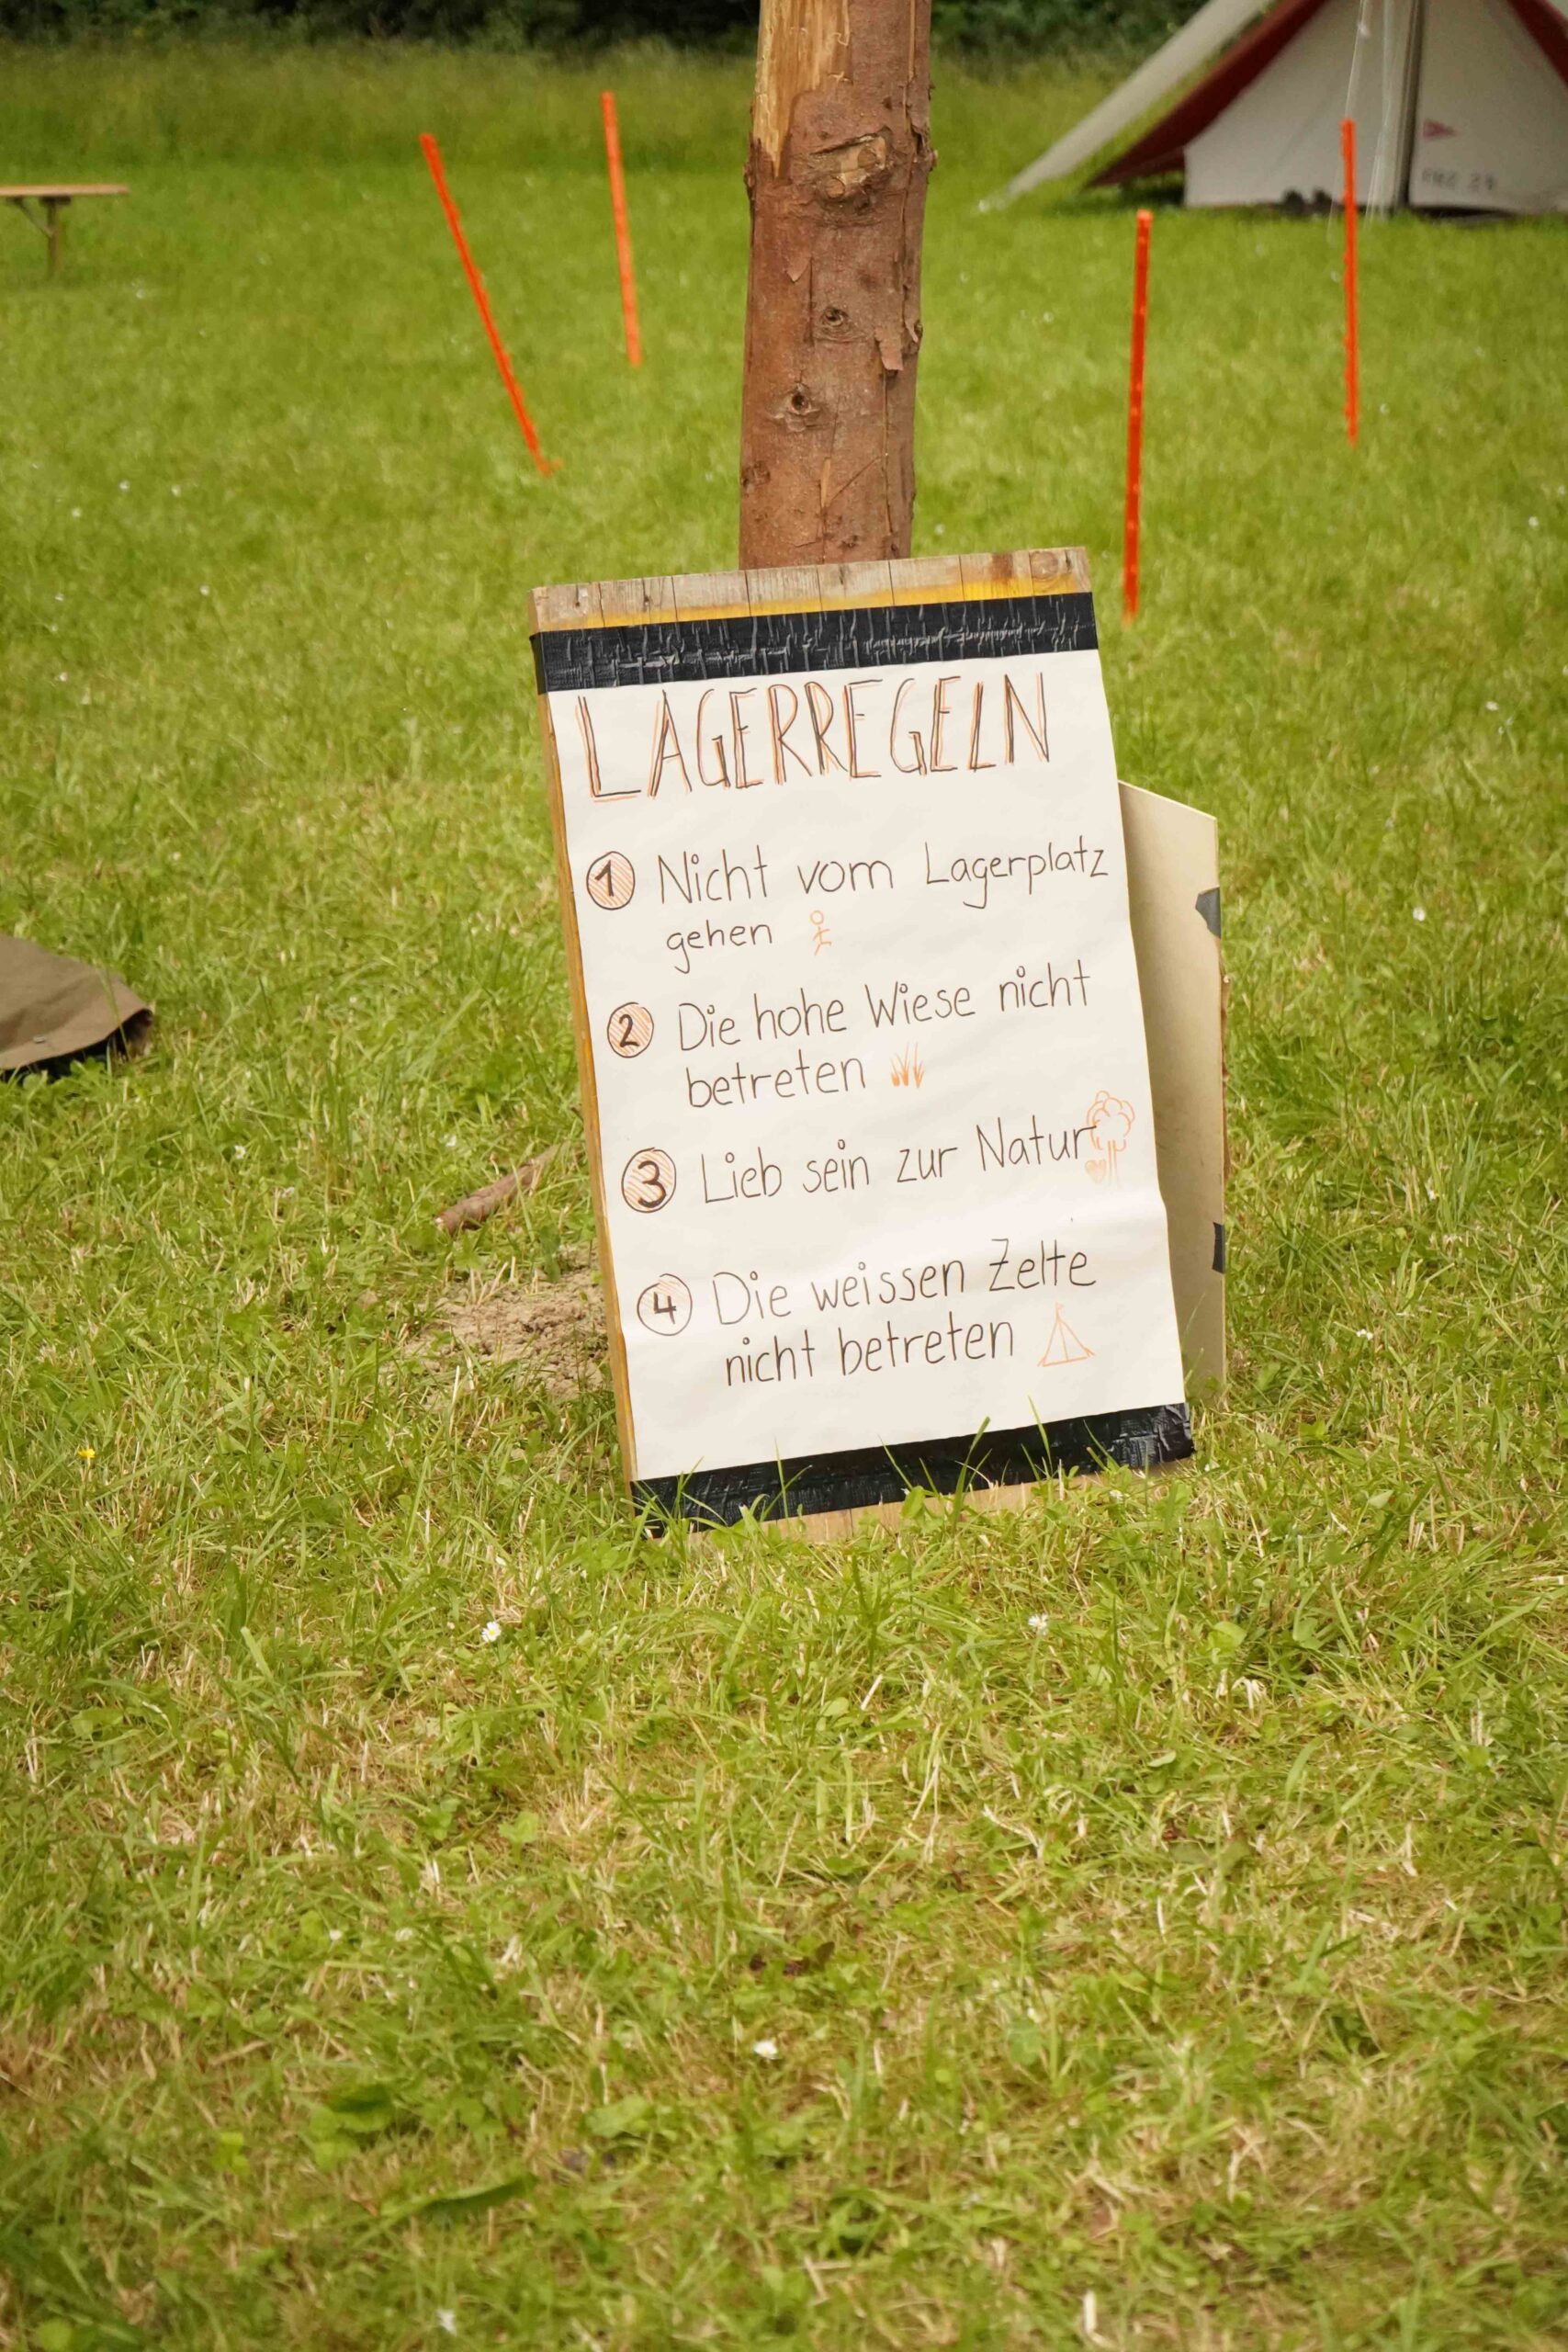 LAGERREGELN
1 Nicht vom Lagerplatz
gehen
2 Die hohe Wiese nicht
betreten
3 Lieb sein zur Natur
4 Die weissen Zelte
nicht betreten